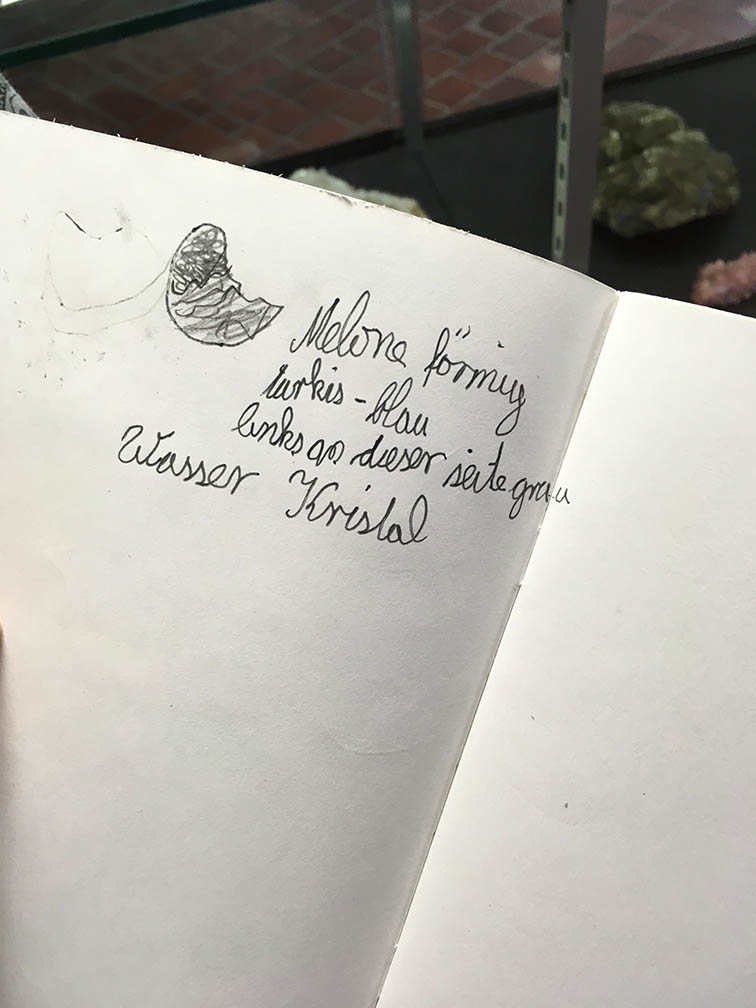 Melone förmig
turkis-blau
links an dieser seite grau
Wasser Kristal